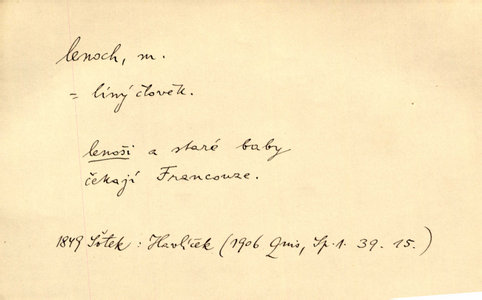 lenoch, m.
= líný člověk.
lenoši a staré baby
čekají Francouze.
1849 : Havlíček (1906 Quis, Sp. 1. 39. 15.)